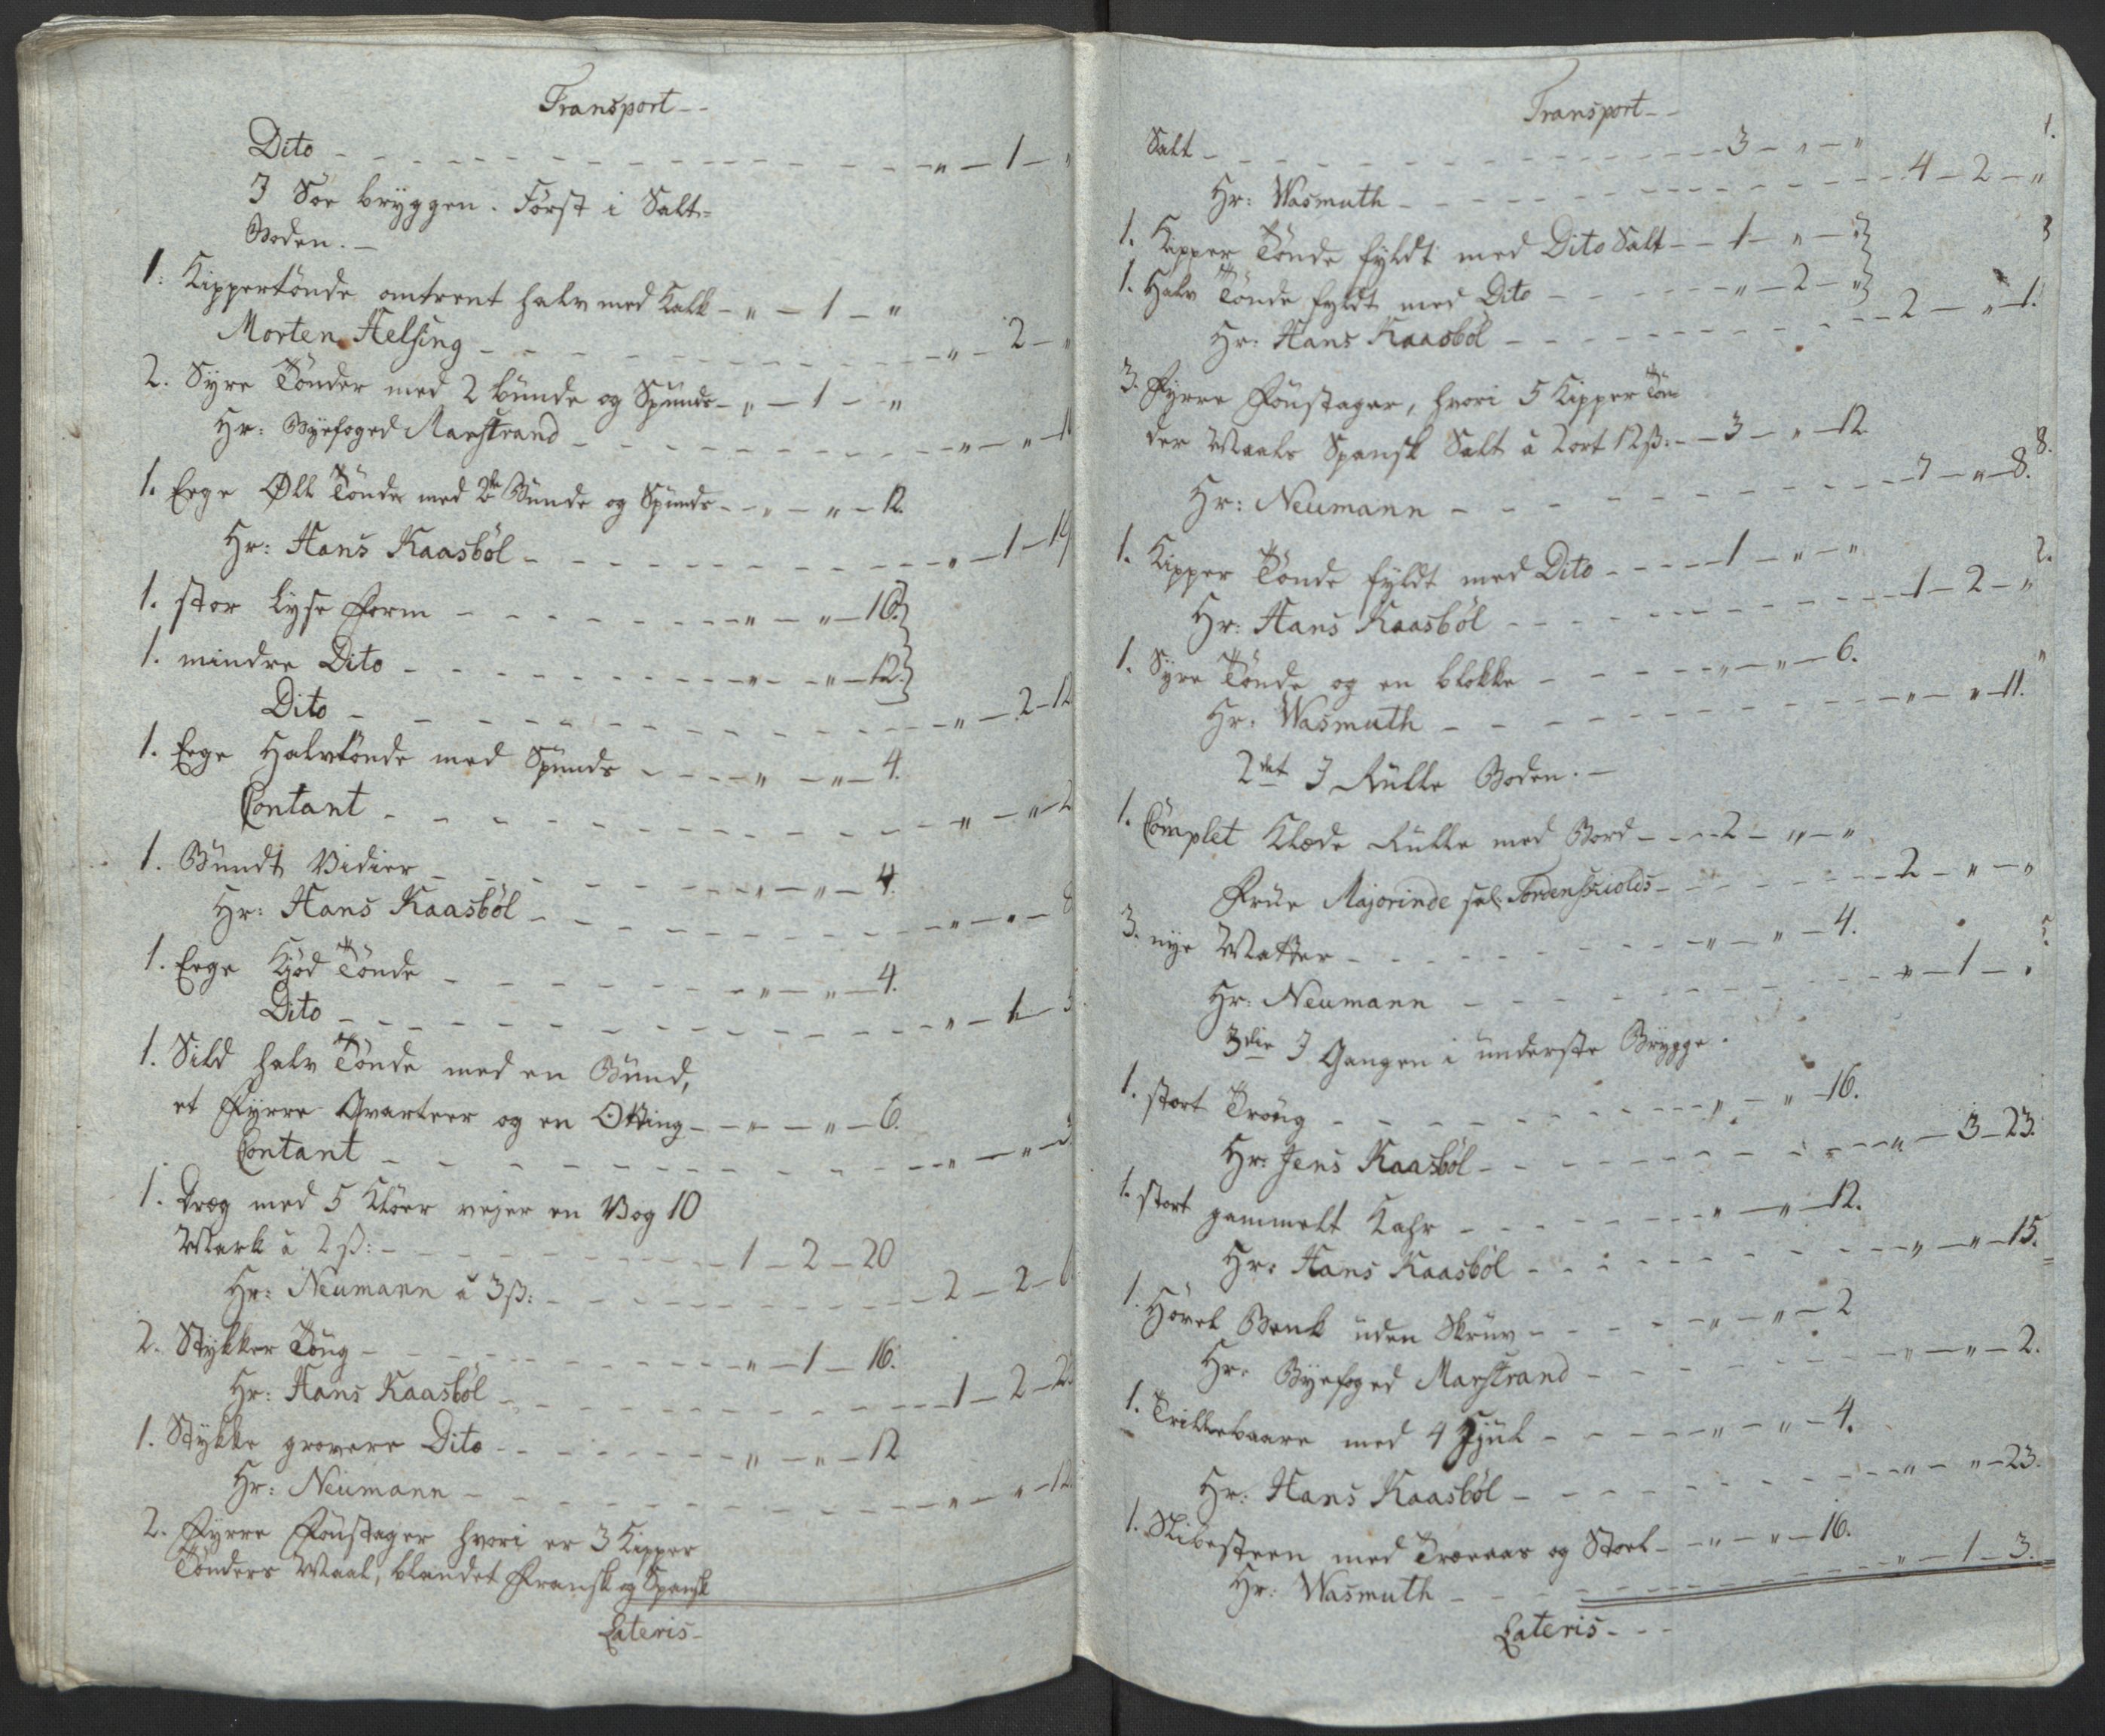 Transport--
Dito - - - - „ - 1 - „
I Søe bryggen. Først i Salt=
Boden. -
1. Kippertönde omtrent halv med Kalk - „ - 1 - „
Morten Helsing - - - - „ - 2 - „
2. Syre Tönder med 2 bunde og Spunds - „ - 1 - „
Hr: Byefoged Marstrand - - - - „ - „ -
1. Eege Øll Tönde med 2de Bunde og Spunds - - „ - „ - 12.
Hr: Hans Kaasböl - - - - „ - 1 - 19
1. stor Lyse Form - - - - „ - „ - 16.}
1. mindre Dito - - - - „ - „ - 12.}
Dito - - - - „ - 2 - 12
1. Eege Halvtönde med Spunds - - - - „ - „ - 4.
Contant - - - - „ - „ - 2
1. Bundt Vidier - - - - „ - „ - 4.
Hr: Hans Kaasböl - - - - „ - „ - 8
1. Eege Kjød Tönde - - - - „ - „ - 4.
Dito - - - - „ - 1 - 5
1. Sild halv Tönde med en Bund,
et Fyrre Qvarteer og en Otting - - „ - „ - 6.
Contant - - - - „ - „ -
1. Dræg med 5 Klöer vejer en Vog 10
Mark à 2 ß: - - - - 1 - 2 - 20
Hr: Neumann à 3 ß: - - - - 2 - 2 - 6
2. Stykker Toug - - - - „ - 1 - 16.
Hr: Hans Kaasböl - - - - 1 - 2 - 2
1. Stykke grovere Dito - - - - „ - „ - 12
Hr: Neumann - - - - „ - „ - 12.
2. Fyrre Foustager hvori er 3 Kipper
Tönders Maal, blandet Fransk og Spansk
Lateris -
Transport--
1.
Salt - - - - 3 - „ - „
Hr: Wasmuth - - - - 4 - 2 - „
1. Kipper Tönde fyldt med Dito Salt - - 1 - „ - „}
3
1. Halv Tönde fyldt med Dito - - - - „ - 2 - „}
Hr: Hans Kaasböl - - - - 2 - „ - 1.
3. Fyrre Foustager, hvori 5 Kipper Tön=
der Maals Spansk Salt à 2 ort 12 ß: - - 3 - „ - 12
8.
Hr: Neumann - - - - 7 - „ - 8.
1. Kipper Tönde fyldt med Dito - - - - 1 - „ - „
2.
Hr: Hans Kaasböl - - - - 1 - 2 - „
1. Syre Tönde og en blokke - - - - „ - „ - 6.
„
Hr: Wasmuth - - - - „ - „ - 11.
2det I Rulle Boden. -
1. Complet Klæde Rulle med Bord - - - 2 - „ - „
Frue Majorinde sal: Tordenskiolds - - - - 2 - „ - „
3. nye Matter - - - - „ - „ - 4.
5.
Hr: Neumann - - - - „ - 1 - „
3die I Gangen i underste Brygge.
1. stort Troug - - - - „ - „ - 16.
Hr: Jens Kaasböl - - - - „ - 3 - 23.
1. stort gammelt Kahr - - - - „ - „ - 12.
Hr: Hans Kaasböl - - - - „ - „ - 15.
1. Hövel Benk uden Skruv - - - - „ - „ - 2
Hr: Byefoged Marstrand - - - - „ - „ - 2.
1. Trillebaare med 4 Hjul - - - - „ - „ - 4.
Hr: Hans Kaasböl - - - - „ - „ - 23.
1. Slibesteen med Træeaar og Stoel - - „ - „ - 16.
Hr: Wasmuth - - - - „ - 1 - 3.
Lateris - - -